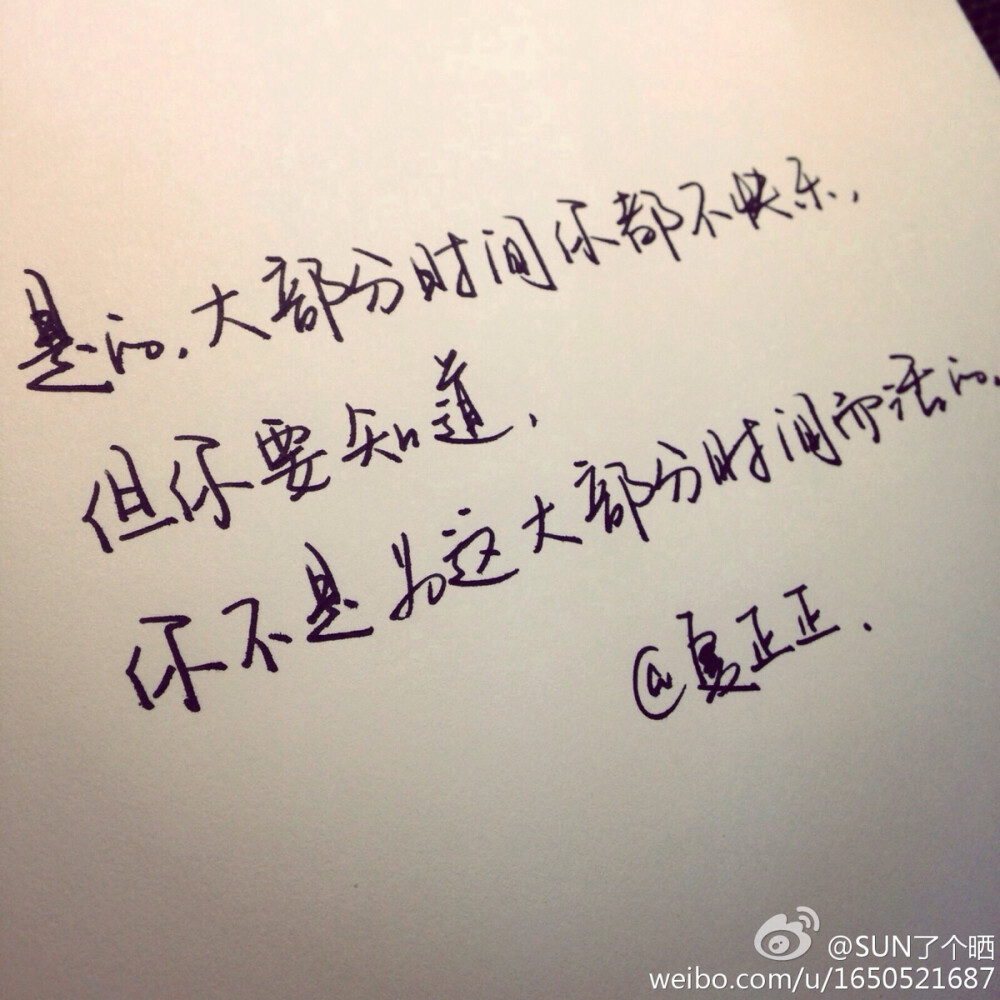 是的.大部分时间你都不快乐,
但你要知道,
你不是为这大部分时间而活的.
@夏正正.
@SUN了个晒
weibo.com/u/1650521687